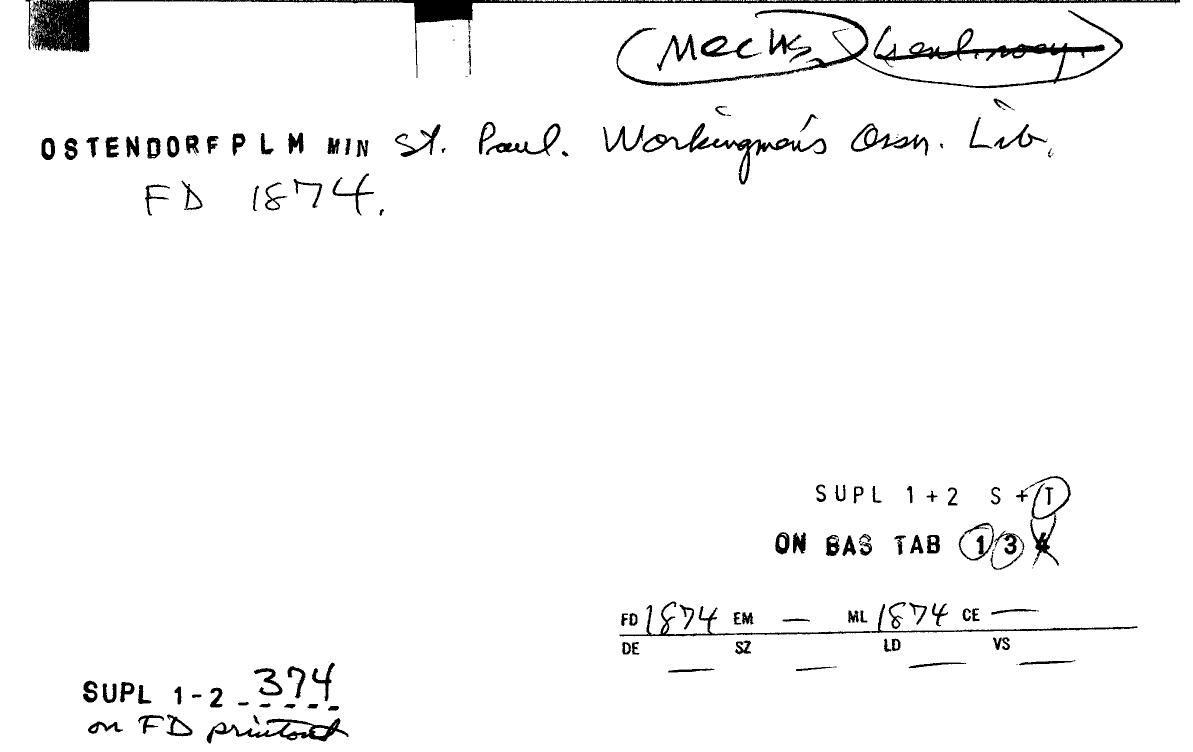 Mechs
OSTENDORF P L M MIN St. Paul. Workingmen's Assn. Lib.
FD 1874.
SUPL 1+2 S+T
ON BAS TAB 1 3 4
FD 1874 EM — ML 1874 CE —
DE — SZ — LD — VS —
SUPL 1-2 374
on FD printout